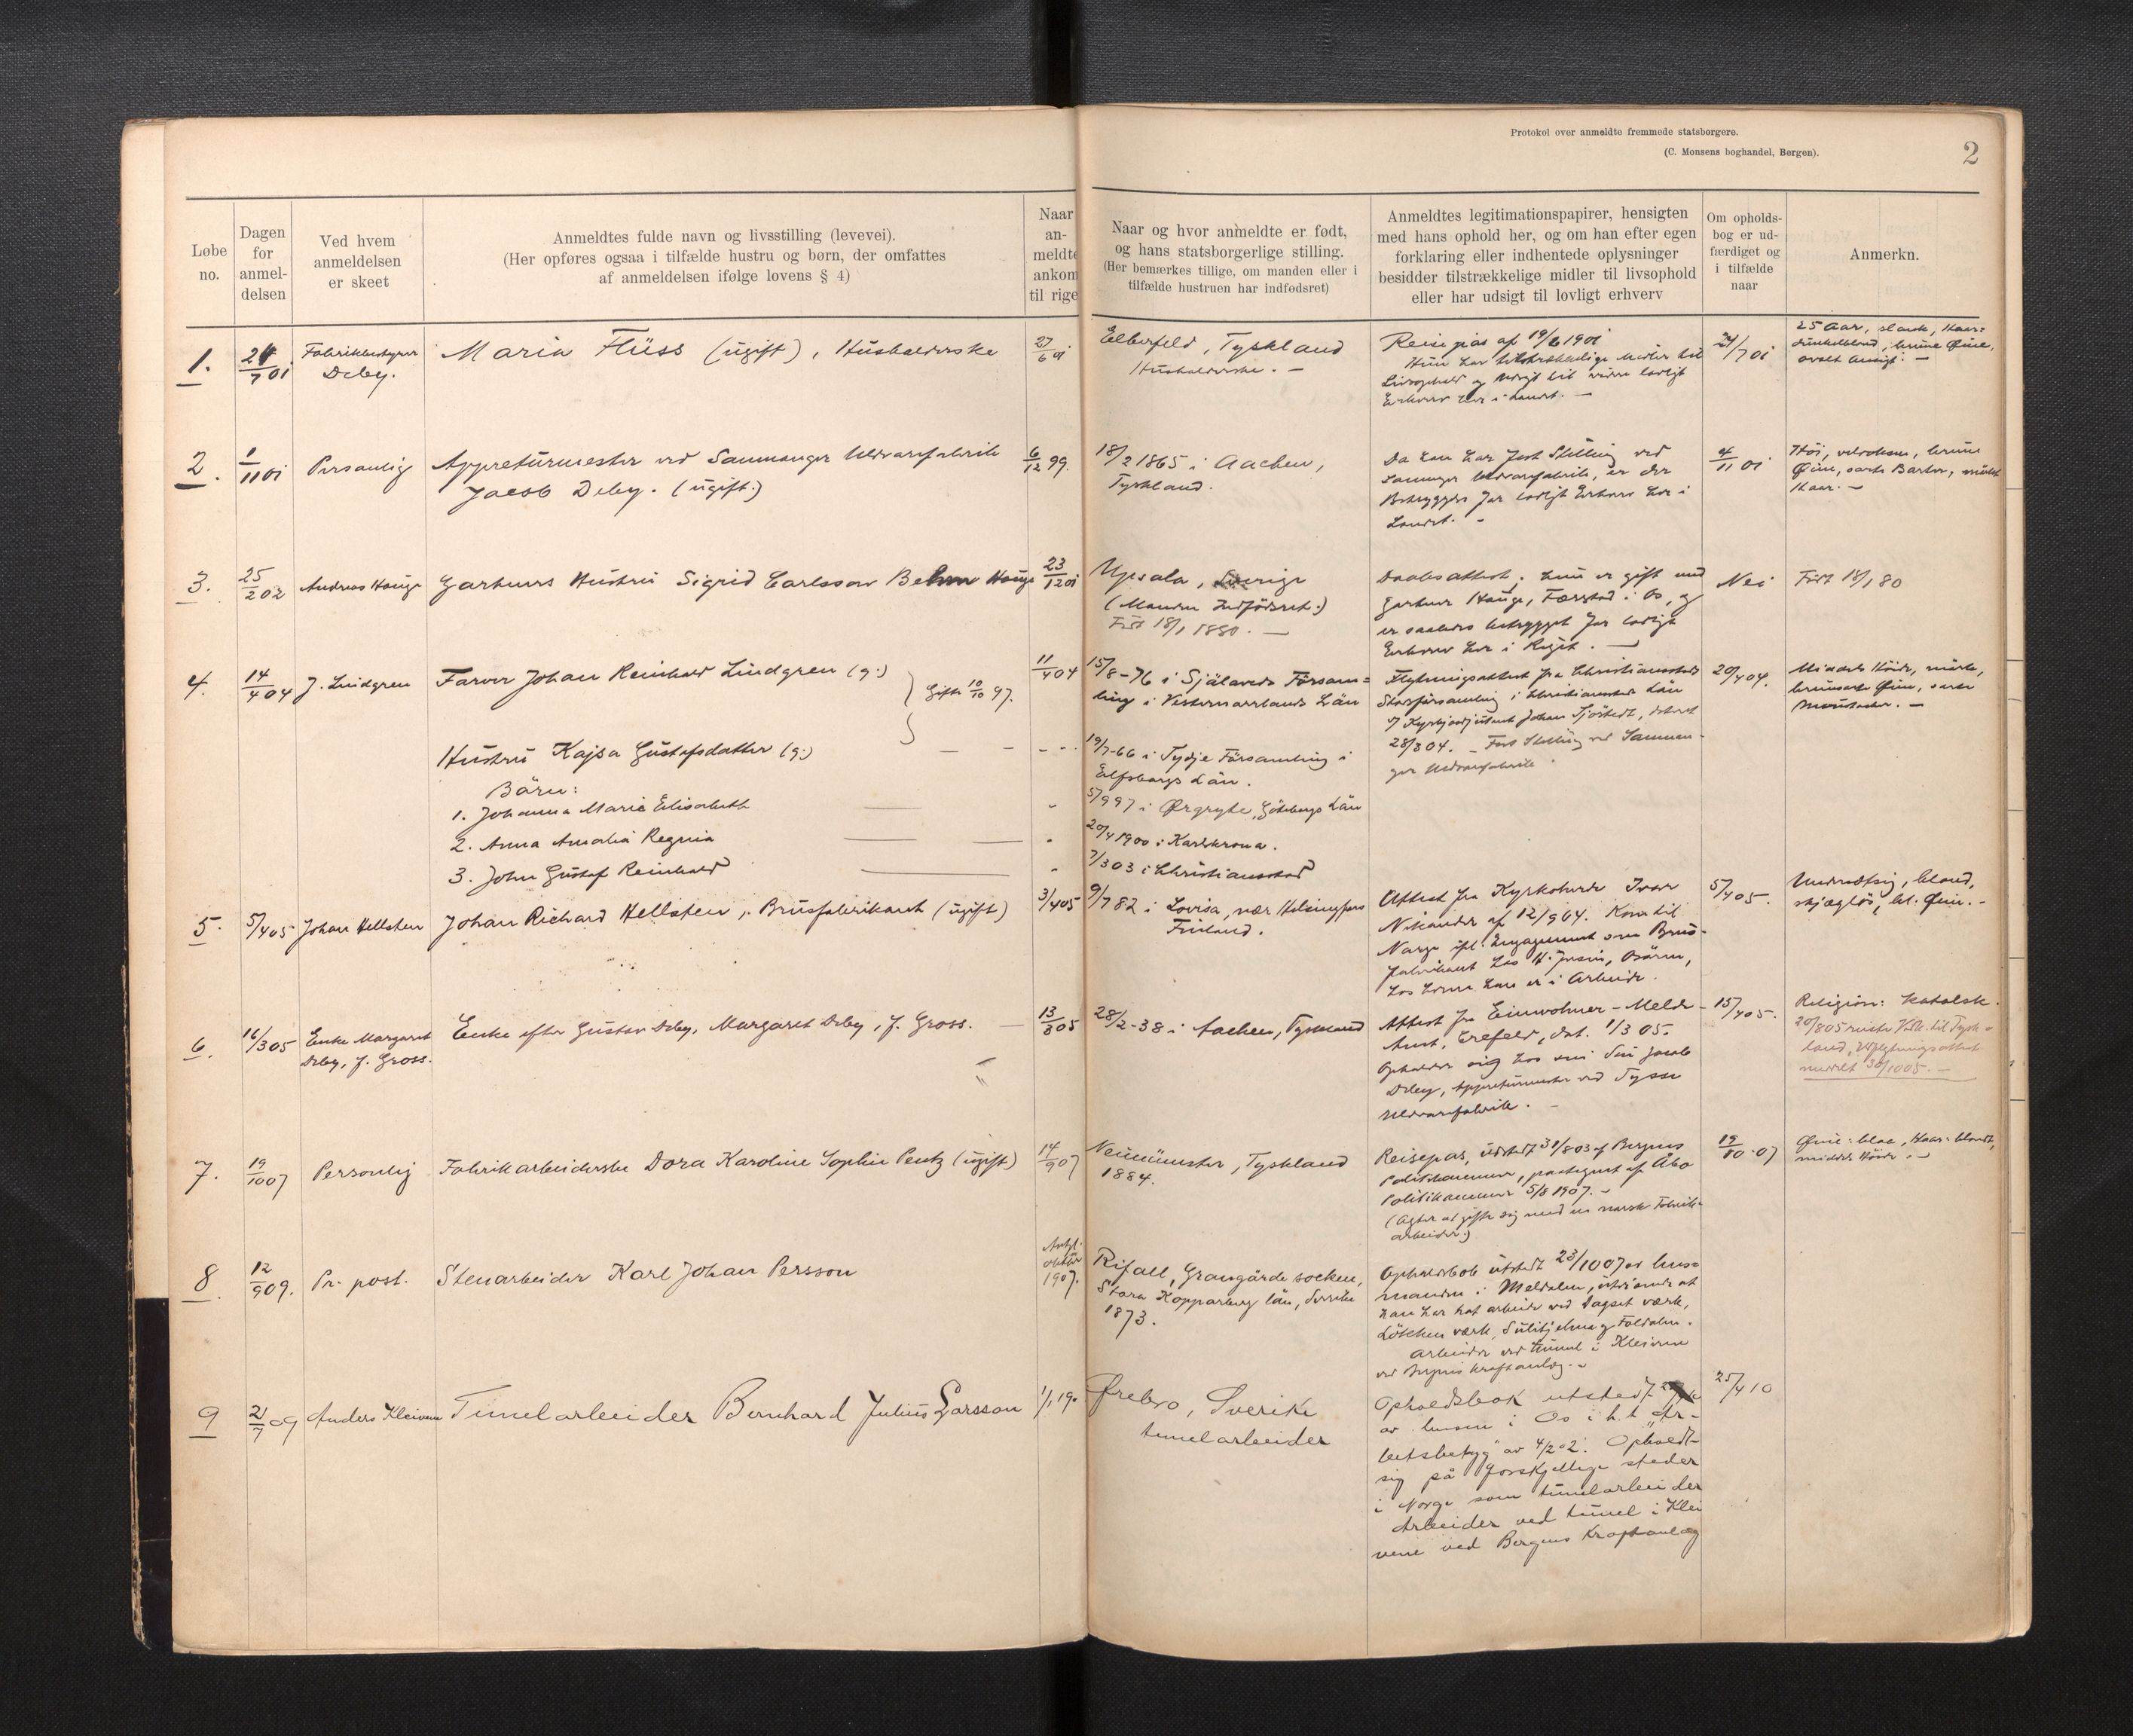 Protokol over anmeldte fremmede statsborgere.
(C. Monsens boghandel, Bergen).
2
Løbe no.
Dagen for anmeldelsen
Ved hvem anmeldelsen er skeet
Anmeldtes fulde navn og livsstilling (levevei).
(Her opføres ogsaa i tilfælde hustru og børn, der omfattes
af anmeldelsen ifølge lovens § 4)
Naar
an-
meldte
ankom
til rige
Naar og hvor anmeldte er født,
og hans statsborgerlige stilling.
(Her bemærkes tillige, om manden eller i
tilfælde hustruen har indfødsret)
Anmeldtes legitimationspapirer, hensigten
med hans ophold her, og om han efter egen
forklaring eller indhentede oplysninger
besidder tilstrækkelige midler til livsophold
eller har udsigt til lovligt erhverv
Om opholds-
bog er ud-
færdiget og
i tilfælde
naar
Anmerkn.
1.
24/7 01
Fabrikbestyrer
Deby.
Maria Flüss (ugift), Husholderske
27/6 01
Elberfeld, Tyskland
Husholderske. -
Reisepas af 19/6 1901
Hun har tilstrækkelige Midler til
Livsophold og Udsigt til videre lovligt
Erhverv her i Landet. -
24/7 01
25 Aar, slank, Haar:
dunkelblond, brune Øine,
ovalt Ansigt. -
2.
1/11 01
Personlig
Appreturmester ved Samnanger Uldvarefabrik
Jacob Deby. (ugift.)
6/12 99.
18/2 1865 i Aachen,
Tyskland.
Da han har fast Stilling ved
Samnanger Uldvarefabrik, er der
Betryggelse for lovligt Erhverv her i
Landet. -
4/11 01
Høi, velvoksen, brune
Øine, sorte Barter, mörkt
Haar. -
3.
25/2 02
Andreas Hauge
Garhuers Hustru Sigrid Carlsson Hauge
23/12 01
Upsala, Sverige
(Manden Indfödsret.)
Født 18/1 1880. -
Daabsattest; hun er gift med
Hauge, i Os, og
er saaledes betrygget for lovligt
Erhverv her i Riget. -
Nei
Født 18/1 80
4.
14/4 04
J. Lindgren
Farver Johan Reinhold Lindgren (g.)
Gift 10/10 97.
11/4 04
15/8-76 i Själevads Försam=
ling i Vesternorrlands Län
Flytningsattest fra Christianstads
Stadsförsamling i Christianstads Län
v/ Johan Sjöstedt, dateret
28/3 04. - Fast Stilling ved Samnan-
ger Uldvarefabrik.
20/4 04.
Middels Höide, mörk,
brunsorte Öine, sorte
Moustacher. -
Hustru Kajsa Gustafsdatter (g.)
19/7-66 i Tydje Församling i
Elfsborgs Län.
Börn:
1. Johanna Marie Elisabeth
5/9 97 i Ørgryte, Göteborgs Län
2. Anna Amalia Regina
20/4 1900 i Karlskrona.
3. John Gustaf Reinhold
7/3 03 i Christianstad
5.
5/4 05
Johan Hellsten
Johan Richard Hellsten, Brusfabrikant (ugift)
3/4 05
9/7 82 i Lovisa, nær Helsingfors
Finland.
Attest fra Kyrkoherde Ivar
Nikander af 12/9 04. Kom til
Norge ifl. Engagement som Brus-
fabrikant hos
hos hvem han er i Arbeide.
5/4 05.
Undersætsig, blond,
skjægløs, bl. Øine. -
6.
16/3 05
Enke Margaret
Deby, f. Gross.
Enke efter Gustav Deby, Margaret Deby, f. Gross.
13/3 05
28/2-38 i Aachen, Tyskland
Attest fra Einwohner-Melde-
Amt, Crefeld, dat. 1/3 05.
Opholder sig hos sin Søn Jacob
Deby, Appreturmester ved Tysse
Uldvarefabrik. -
15/4 05.
Religion: katolsk.
20/8 05 reiste til Tysk-
land, Udflytningsattest
meddelt 30/10 05. -
7.
19/10 07
Personlig
Fabrikarbeiderske Dora Karoline Sophie Pentz (ugift)
14/9 07
Neumünster, Tyskland
1884.
Reisepas, udstedt 31/8 03 af Bergens
Politikammer, paategnet af Åbo
Politikammer 5/8 1907. -
(Agter at gifte sig med en norsk Fabrik-
arbeider.)
19/10 07
Øine: blaa, Haar: blondt,
middels Höide. -
8.
12/9 09.
Pr. post.
Stenarbeider Karl Johan Persson
oktbr
1907.
Rifall, Grangärde socken,
Stora Kopparberg län, Sverike
1873.
Opholdsbok utstedt 23/10 07 av lens-
manden i Meldalen, utvisende at
han har hat arbeide ved Dagset værk,
Løkken værk, Sulitjelma og Foldalen.
Arbeider ved tunnel i Kleivene
ved Bergens kraftanlæg. -
9
21/7 09
Anders Kleivane
Tunelarbeider Bernhard Julius Larsson
1/1 190
Ørebro, Sverike
tunelarbeider
Opholdsbok utstedt
av lensm i Os i h.t. "Ar-
betsbetyg" av 4/2 02. Opholdt
sig på forskjellige steder
i Norge som tunelarbeider
Arbeider ved tunel i Klei
vene ved Bergens Kraftanlæg
25/4 10